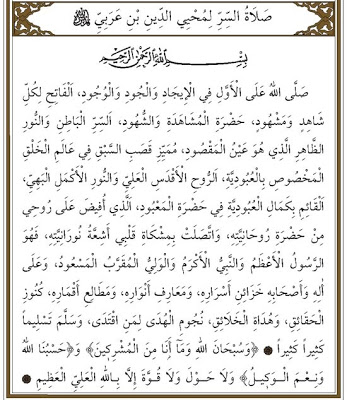 صَلَاةُ السِّرِّ لِمُحْيِي الدِّينِ بْنِ عَرَبِيِّ ﷺ
بِسْمِ اللهِ الرَّحْمٰنِ الرَّحِيمِ
صَلَّى اللهُ عَلَى الْأَوَّلِ فِي الْإِيجَادِ وَالْجُودِ وَالْوُجُودِ، اَلْفَاتِحِ لِكُلِّ
شَاهِدٍ وَمَشْهُودٍ، حَضْرَةِ الْمُشَاهَدَةِ وَالشُّهُودِ، اَلسِّرِّ الْبَاطِنِ وَالنُّورِ
الظَّاهِرِ الَّذِي هُوَ عَيْنُ الْمَقْصُودِ، مُمَيِّزِ قَصَبِ السَّبْقِ فِي عَالَمِ الْخَلْقِ
الْمَخْصُوصِ بِالْعُبُودِيَّةِ، اَلرُّوحِ الْأَقْدَسِ الْعَلِيِّ وَالنُّورِ الْأَكْمَلِ الْبَهِيِّ،
اَلْقَائِمِ بِكَمَالِ الْعُبُودِيَّةِ فِي حَضْرَةِ الْمَعْبُودِ، اَلَّذِي أُفِيضَ عَلَى رُوحِي
مِنْ حَضْرَةِ رُوحَانِيَّتِهِ، وَاتَّصَلَتْ بِمِشْكَاةِ قَلْبِي أَشِعَّةُ نُورَانِيَّتِهِ، فَهُوَ
الرَّسُولُ الْأَعْظَمُ وَالنَّبِيُّ الْأَكْرَمُ وَالْوَلِيُّ الْمُقَرَّبُ الْمَسْعُودُ، وَعَلَى
أٰلِهِ وَأَصْحَابِهِ خَزَائِنِ أَسْرَارِهِ، وَمَعَارِفِ أَنْوَارِهِ، وَمَطَالِعِ أَقْمَارِهِ، كُنُوزِ
الْحَقَائِقِ، وَهُدَاةِ الْخَلَائِقِ، نُجُومِ الْهُدَى لِمَنِ اقْتَدَى، وَسَلَّمَ تَسْلِيماً
كَثِيراً كَثِيراً ● ﴿وَسُبْحَانَ اللهِ وَمَٓا أَنَا مِنَ الْمُشْرِكِينَ﴾ وَ﴿حَسْبُنَا اللهُ
وَنِعْمَ الْوَكِيلُ﴾ وَلَا حَوْلَ وَلَا قُوَّةَ إِلَّا بِاللهِ الْعَلِيِّ الْعَظِيمِ ●